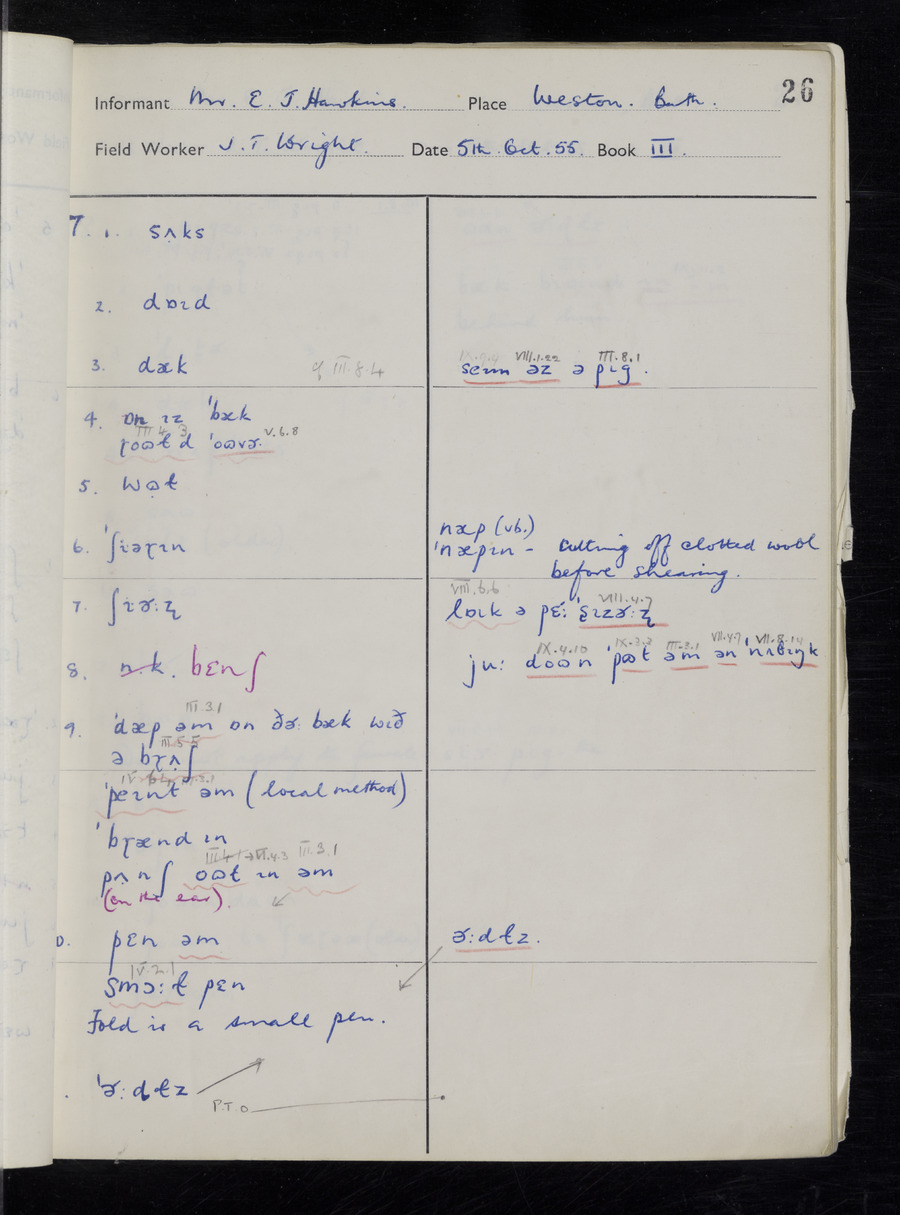 26
Informant Mr. E. J. Hawkins. Place Weston. Bath.
Field Worker J. T. Wright. Date 5th Oct. 55. Book III.
7. 1. sʌks
2. dɒɪd
3. dæk cf III.8.4
IX.9.4 VIII.1.22 III.8.1
seɪm əz ə pɪg.
4. ɒn ɪz 'bæk
III.4.3 V.6.8
'oʊvɚ.
5. wʊɫ
6. 'ʃɪəɽɪn
næp (vb.)
'næpɪn - cutting off clotted wool
before shearing.
7. ʃɪɚ:ʐ
VIII.6.6 VIII.4.7
lɒɪk ə pɛ: 'sɪzɚ:ʐ
8. bɛnʃ
IX.4.10 IX.3.3 III.3.1 VII.4.7 VII.8.14
ju: doʊn 'pʊt əm ən 'nʌtɪŋk
9. III.3.1
'dæp əm ɒn ðɚ: bæk wɪð
III.5.5
ə bɽʌʃ
'peɪnt əm (local method)
'bɽænd ɪn
VI.4.3 III.3.1
pʌnʃ oʊt ɪn əm
(on the ear).
0. pɛn əm
ɚ:dɫz.
IV.2.1
smɔ:ɫ pɛn
Fold is a small pen.
. 'ɚ:dɫz
P.T.O